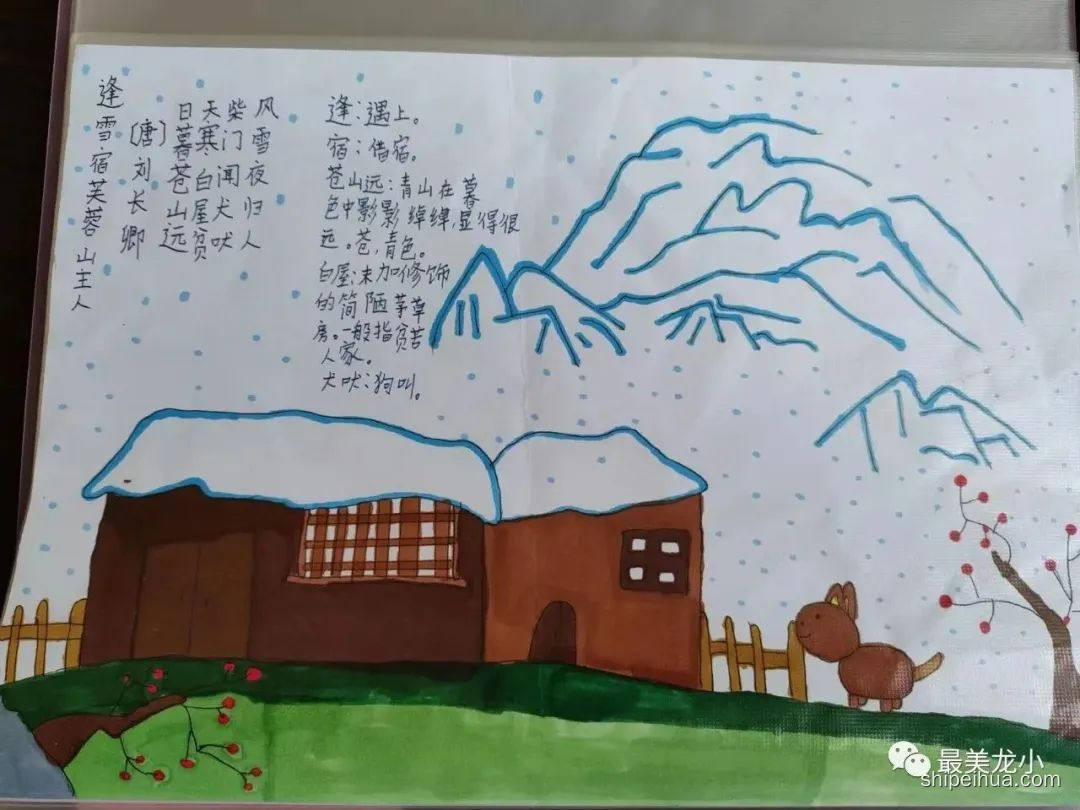 逢雪宿芙蓉山主人
〔唐〕刘长卿
日暮苍山远
天寒白屋贫
柴门闻犬吠
风雪夜归人
逢：遇上。
宿：借宿。
苍山远：青山在暮
色中影影绰绰，显得很
远。苍，青色。
白屋：未加修饰
的简陋茅草
房。一般指贫苦
人家。
犬吠：狗叫。
最美龙小
shipeihua.com